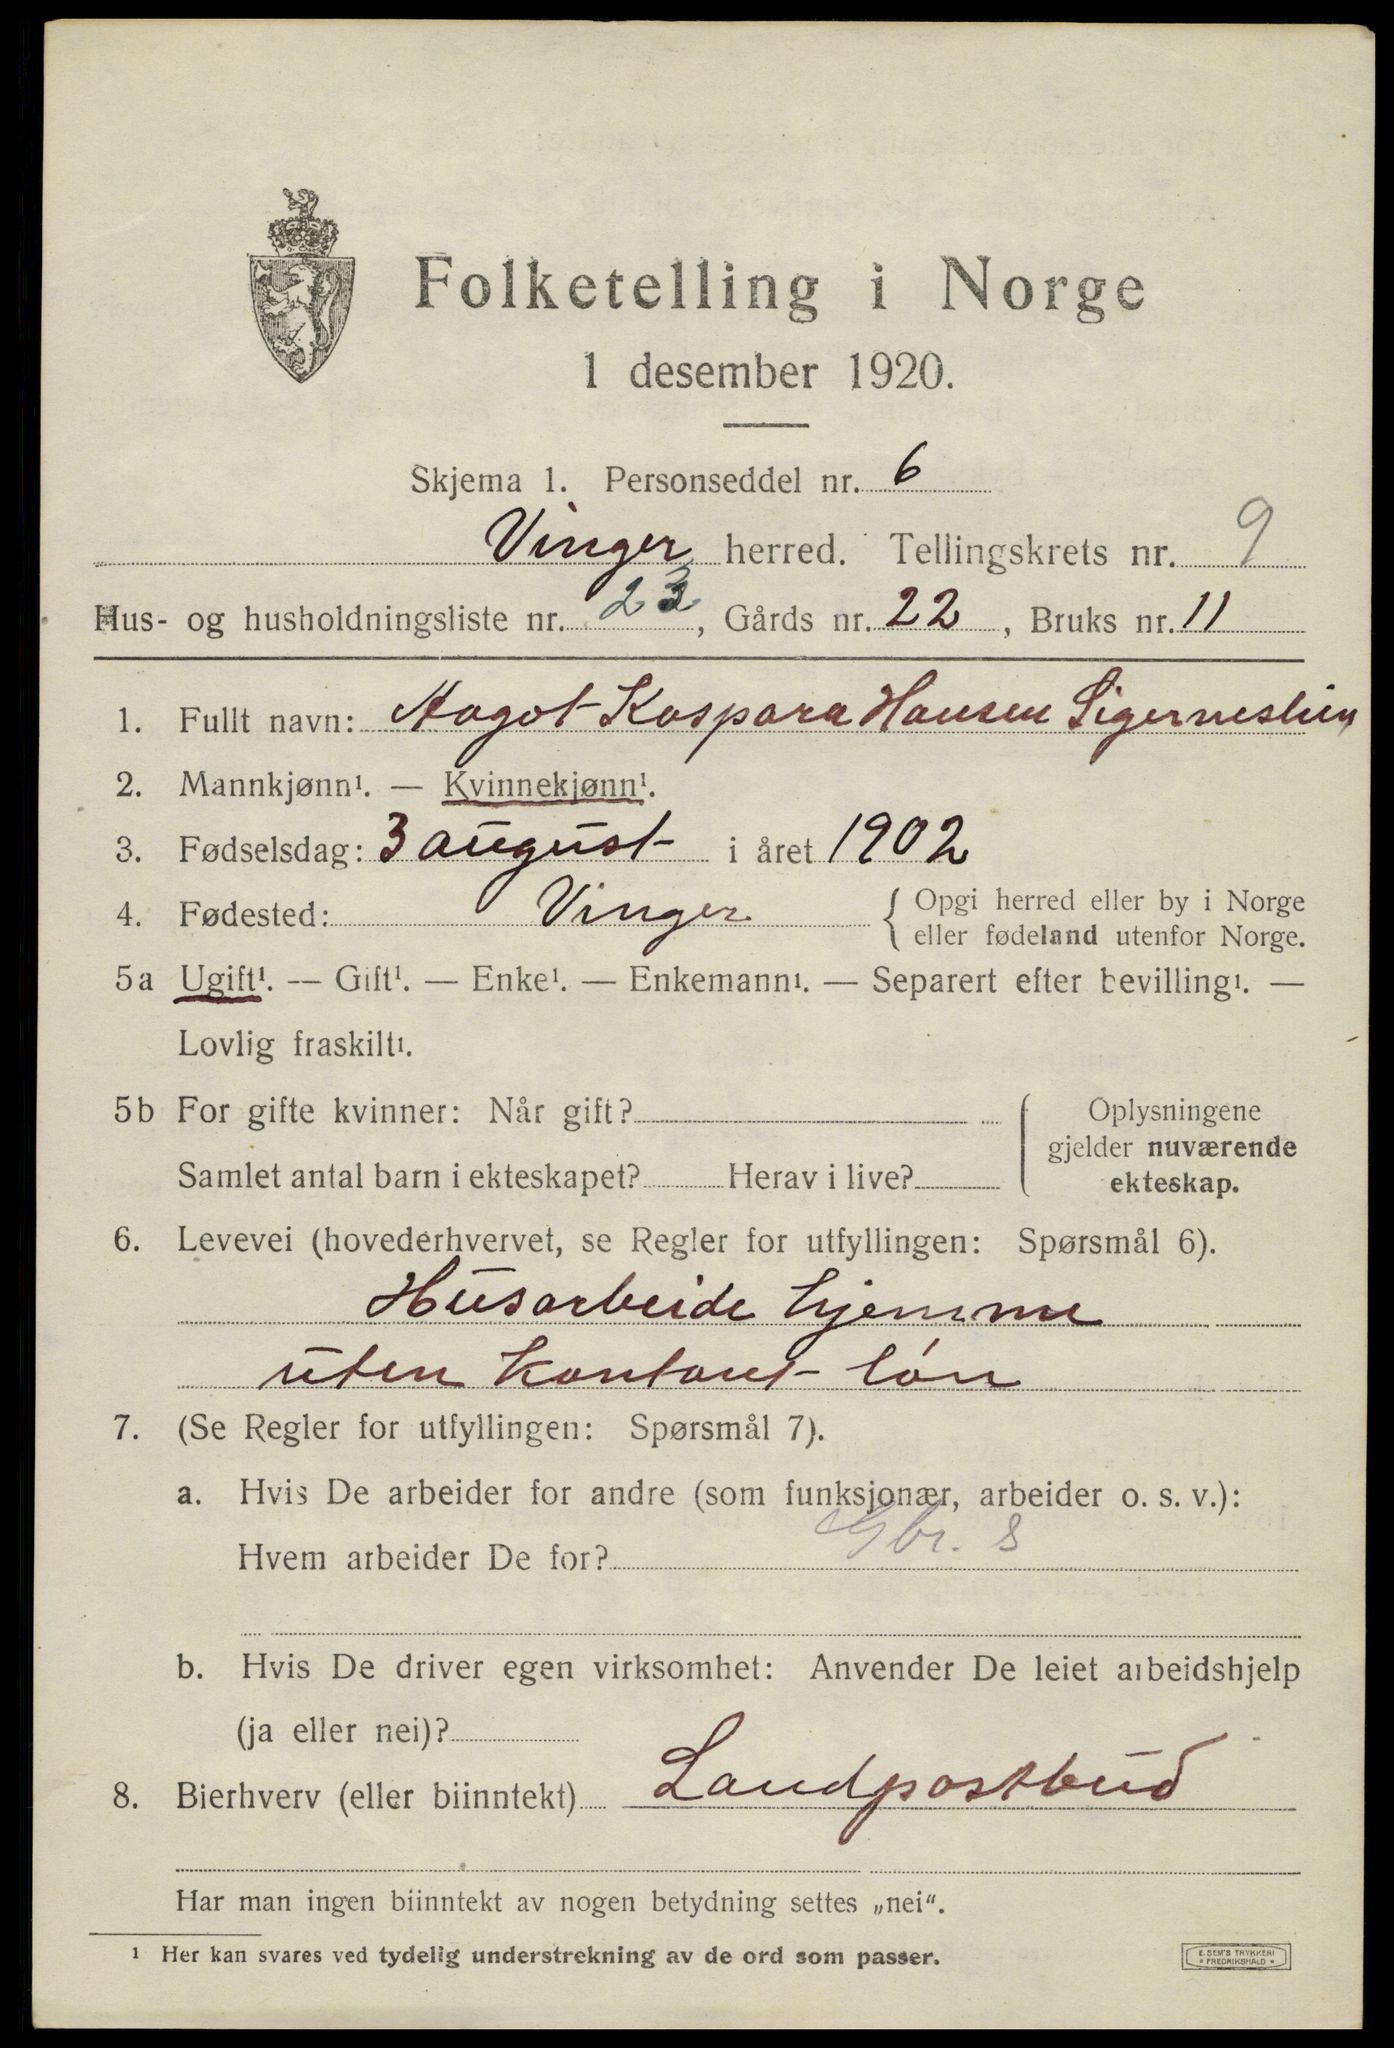 Folketelling i Norge
1 desember 1920.
Skjema 1. Personseddel nr. 6
Vinger herred. Tellingskrets nr. 9
Hus- og husholdningsliste nr. 23, Gårds nr. 22, Bruks nr. 11
1. Fullt navn: Aagot Kaspara Hansen Sigernes
2. Mannkjønn¹. — Kvinnekjønn¹.
3. Fødselsdag: 3 august i året 1902
4. Fødested: Vinger { Opgi herred eller by i Norge
eller fødeland utenfor Norge.
5a Ugift¹. — Gift¹. — Enke¹. — Enkemann¹. — Separert efter bevilling¹. —
Lovlig fraskilt¹.
5b For gifte kvinner: Når gift?
Samlet antal barn i ekteskapet? Herav i live?
Oplysningene
gjelder nuværende
ekteskap.
6. Levevei (hovederhvervet, se Regler for utfyllingen: Spørsmål 6).
Husarbeide hjemme
uten kontant løn
7. (Se Regler for utfyllingen: Spørsmål 7).
a. Hvis De arbeider for andre (som funksjonær, arbeider o. s. v.):
Hvem arbeider De for? Gbr. s
b. Hvis De driver egen virksomhet: Anvender De leiet arbeidshjelp
(ja eller nei)?
8. Bierhverv (eller biinntekt) Landpostbud
Har man ingen biinntekt av nogen betydning settes „nei“.
¹ Her kan svares ved tydelig understrekning av de ord som passer.
E. SEM'S TRYKKERI
FREDRIKSHALD